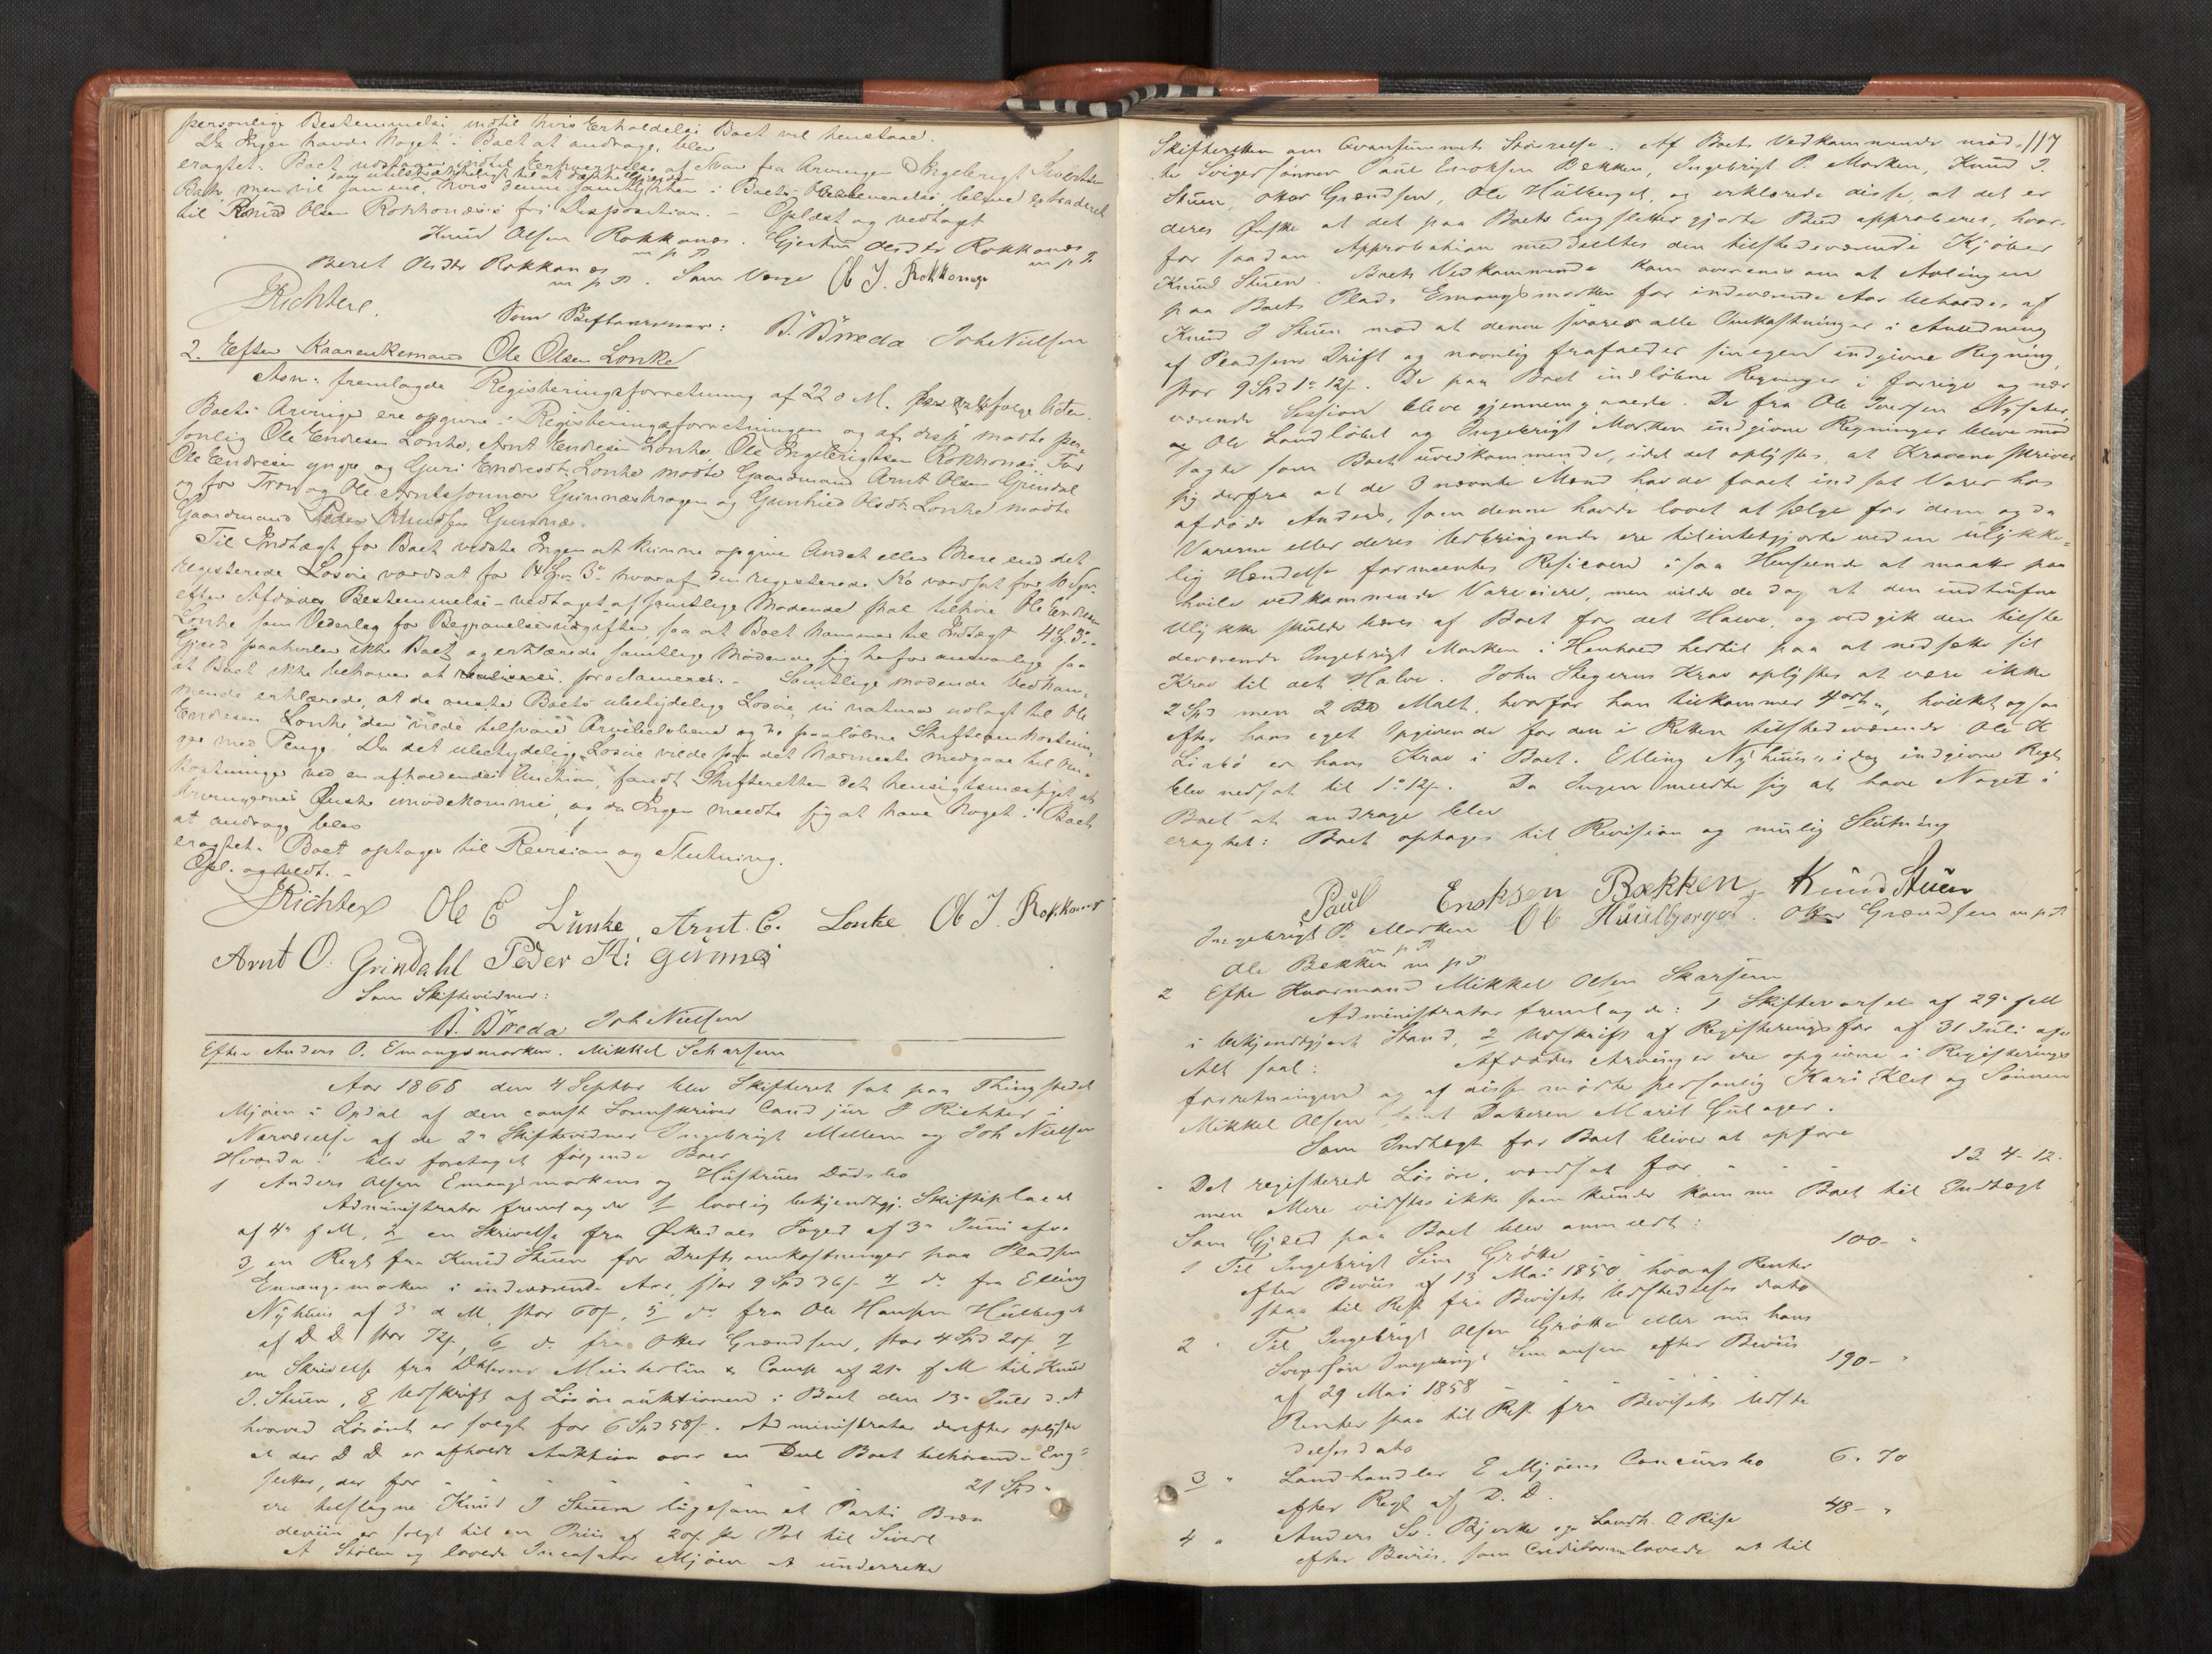 personlige Bestemmelse indtil hvis Erholdelse Boet vil henstaae.
Da Ingen havde Noget i Boet at andrage, blev
eragtet: Boet udstaaer indtil Erhvervelse af Svar fra Arvingen Ingebrigt Sivertsen
Boets, men vil som ene, hvis denne samtykker i Boets Beskrivelse, blive extraderet
til Knud Olsen Rokkonæs's fri Disposition. - Oplæst og vedtaget
Knud Olsen Rokkonæs. Gjertru Olsdtr Rokkonæs
m p P m p P
Beret Olsdtr Rokkonæs Som Verge O I. Rokkones
m p P.
JRichter.
Som Skiftevidner: B. Breda Joh Nielsen
2. Efter Kaarenkemand Ole Olsen Lonke
Asm: fremlagde Registeringsforretning af 22 d M. følge liden.
Boets Arvinger ere opgivne i Registeringsforretningen og af disse mødte per-
sonlig Ole Endresen Lonke, Arnt Endresen Lonke, Ole Ingebrigtsen Rokkonæs. For
Ole Endresen yngre og Guri Endresdt. Lonke mødte Gaardmand Arnt Olsen Grindal
og for Tron og Ole Arntssønner Gunnæskragen og Gunhild Olsdt. Lonke mødte
Gaardmand Peder Knudsen Gunnæs.
Til Indtægt for Boet vidste Ingen at kunne opgive Andet eller Mere end det
registerede Løsøre værdsat for 14 Sp. 3 hvoraf den registerede Ko værdsat for 10 Spd.
efter Afdødes Bestemmelse - vedtaget af samtlige Mødende skal tilhøre Ole Endresen
Lonke som Vederlag for Begravelsesudgifter, saa at Boet kommer til Indtægt 4 Sp 3.-
Gjæld paahviler ikke Boet og erklærede samtlige Mødende sig herfor ansvarlige saa
at Boet ikke behøver at proclameres. - Samtlige mødende Vedkom-
mende erklærede, at de ønske Boets ubetydelige Løsøre in natura udlagt til Ole
Endresen Lonke, der vilde tilsvare Arvelodderne og de paaløbne Skifteomkostnin-
ger med Penge. Da det ubetydelige Løsøre vilde paa det Nærmeste medgaae til Om-
kostninger ved en afholdendes Auction, fandt Skifteretten det hensigtsmæssigst at
Arvingernes Ønske imødekommes, og da Ingen meldte sig at have Noget i Boet
at andrage blev
eragtet: Boet optages til Revision og Slutning.
Opl. og vedt. -
JRichter Ole E Lunke Arnt. E. Lonke O I. Rokkones
Arnt O. Grindahl Peder K: Günnes
Som Skiftevidner:
B. Breda Joh Nielsen
Efter Anders O. Emangsmarken. Mikkel Scharsem
Aar 1868 den 4 Septbr blev Skifteret sat paa Thingstedet
Mjøen i Opdal af den const Sorenskriver Cand jur J Richter i
Nærværelse af de 2 Skiftevidner Ingebrigt Mellem og Joh Nielsen
Hvorda: blev foretaget følgende Boer
1 Anders Olsen Emangsmarkens og Hustrues Dødsbo
Administrator fremlagde 1 lovlig bekjendtgj. Skifteplacat
af 4 f M, 2 en Skrivelse fra Ørkedals Foged af 3 Juni afv.
3 en Regt fra Knud Stuen for Driftsomkostninger paa Pladsen
Emangsmarken i indeværende Aar, stor 9 Spd 36 s 4 do fra Elling
Nyhuus af 3 d M, stor 60 s, 5 do fra Ole Hansen Hulberget
af D. D. stor 72 s, 6 d. fra Otter Grændsen, stor 4 Spd 20 s 7
en Skrivelse fra DHerrer Meisterlin & Comp af 21 f M til Knud
I. Stuen, 8 Udskrift af Løsøreauktionen i Boet den 13 Juli d. A
hvorved Løsøret er solgt for 6 Spd 58 s. Administrator derefter oplyste
at der D D er afholdt Auktion over en Deel Boet tilhørende Eng-
sletter, der for " " " 21 Spd "
ere tilslagne Knud I Stuen ligesom et Parti Bræn
deviin er solgt til en Priis af 20 s pr Pot til Sivert
A Stølen og lovede Incasator Mjøen at underrette
117
Skifteretten om Qvantummets Størrelse. Af Boets Vedkommende mød-
te Svigersønner Paul Enoksen Bekken, Ingebrigt P. Marken, Knud I.
Stuen, Otter Grændsen, Ole Hulberget, og erklærede disse, at det er
deres Ønske at det paa Boets Engsletter gjorte Bud approberes, hvor-
for saadan Approbation meddeeltes den tilstedeværende Kjøber
Knud Stuen. Boets Vedkommende kom overens om at Avlingen
paa Boets Plads Emangsmarken for indeværende Aar beholdes af
Knud I Stuen mod at denne svarer alle Omkostninger i Anledning
af Pladsens Drift og navnlig frafalder sin egen indgivne Regning
stor 9 Spd 1 12 s. De paa Boet indløbne Regninger i forrige og nær
værende Session bleve gjennemgaaede. De fra Ole Iversen Nysæter
og Ole Landløbet og Ingebrigt Marken indgivne Regninger bleve mod
sagte som Boet uvedkommende, idet det oplystes, at Kravene skrive
sig derfra at de 3 nævnte Mænd havde faaet indsat Varer hos
afdøde Anders, som denne havde lovet at sælge for dem og da
Varerne eller deres Udbringende ere tilintetgjorte ved en ulykke-
lig Hændelse formeentes Resicoen i saa Henseende at maatte paa
hvile vedkommende Vareeiere, men vilde de dog at den indtrufne
Ulykke skulde bæres af Boet for det Halve, og vedgik den tilste
deværende Ingebrigt Marken i Henhold hertil paa at nedsætte sit
Krav til det Halve. John Stegerens Krav oplystes at være ikke
2 Spd men 2 BD Malt, hvorfor han tilkommer 4 ort ", hvilket ogsaa
efter hans eget Opgivende for den i Retten tilstedeværende Ole K
Liabø er hans Krav i Boet. Elling Nyhuus's i dag indgivne Regt
blev nedsat til 1 12 s. Da Ingen meldte sig at have Noget i
Boet at andrage blev
eragtet: Boet optages til Revision og mulig Slutning
Paul Enoksen Bækken, Knud Stuen
Ingebrigt P. Marken Ol Huulbjerget. Otter Grændsen m p P
m p P
Ole Bekken m p P
2 Efter Kaarmand Mikkel Olsen Skarsem
Administrator fremlagde: 1 Skiftevarsel af 29 f M
i bekjendtgjort Stand, 2 Udskrift af Registeringsfor af 31 Juli afv
Alt saal: Afdødes Arvinger ere opgivne i Registerings
forretningen og af disse mødte personlig Kari Klet og Sønnen
Mikkel Olsen samt Datteren Marit Gulager.
Som Indtægt for Boet bliver at opføre
Det registerede Løsøre, værdsat for " " " 13. 4. 12.
men Mere vidstes ikke som kunde komme Boet til Indtægt
Som Gjæld paa Boet blev anmeldt:
1 Til Ingebrigt Sim Grøtte 100- "
efter Beviis af 13 Mai 1850 hvoraf Renter
staae til Rest fra Bevisets Udstedelses dato
2 " Til Ingebrigt Olsen Grøtte eller nu hans
Svigersøn Ingebrigt Simonsen efter Beviis 190- "
af 29 Mai 1858 " " "
Renter staae til Rest fra Bevisets Udste
delsesdato
3 " Landhandler E Mjøens Concursbo 6. 70
efter Regt af D. D.
4 " Anders Sv. Bjerke og Landh. O Rise 48- "
efter Beviis, som Creditorerne lovede at til